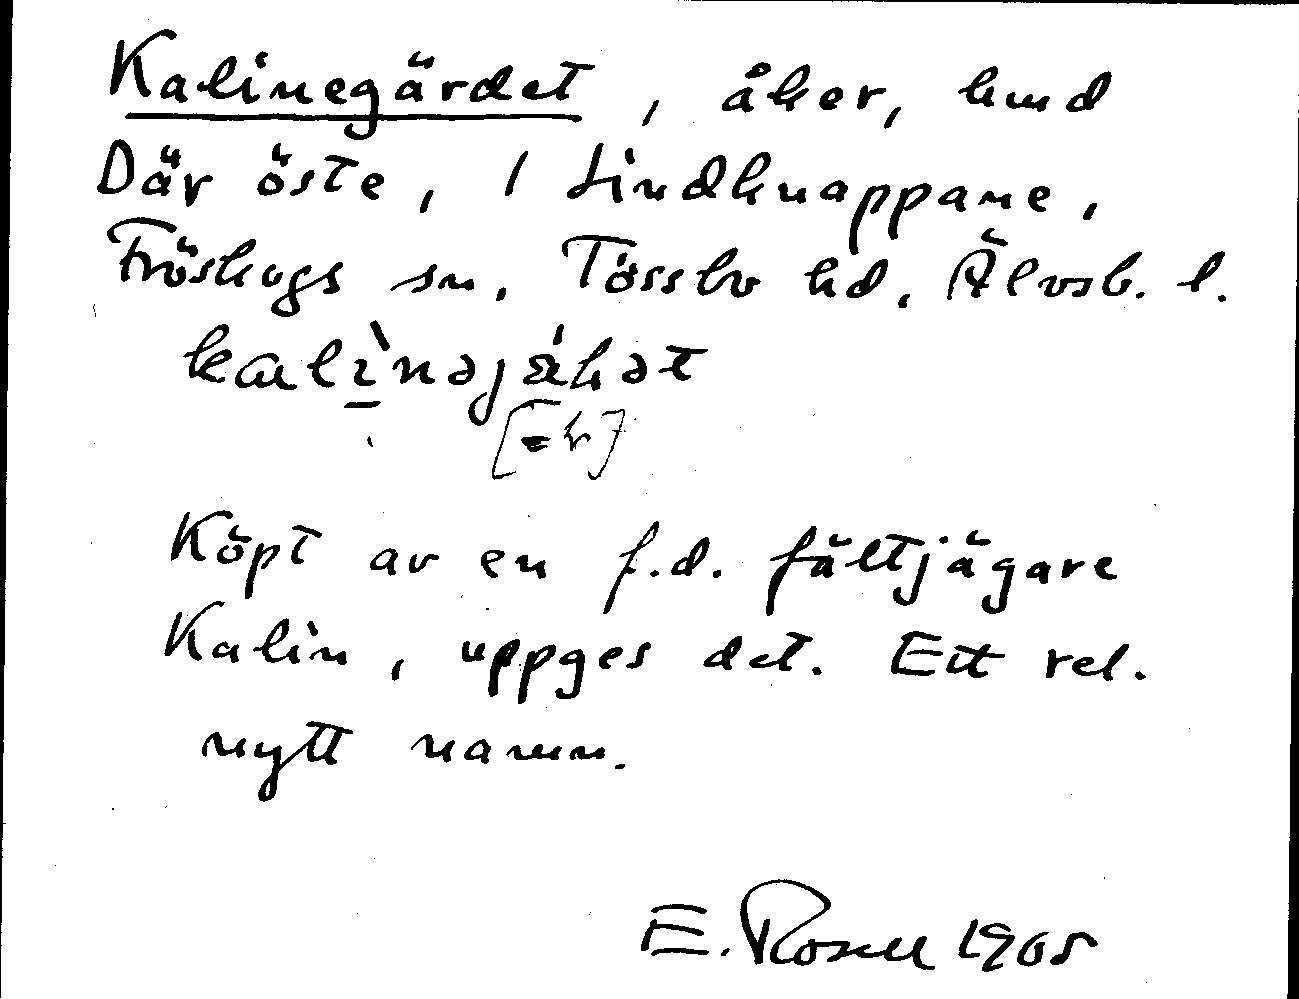 Kalinegärdet, åker, hmd
Där öste, 1 Lindknappane,
Fröskogs sn, Tössbo hd, Älvsb. l.
Köpt av en f.d. fältjägare
Kalin, uppges det. Ett rel.
nytt namn.
E. Rosell 1965